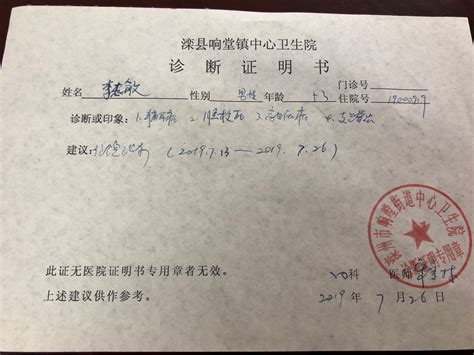 滦县响堂镇中心卫生院
诊断证明书
门诊号
姓名 李志敏 性别 男性 年龄 住院号 19000919
诊断或印象: 1. 2. 3. 高血压病 4.
建议: (2019.7.13 — 2019.7.26)
滦州市响堂街道中心卫生院
诊断证明专用章
此证无医院证明书专用章者无效。 内科 医师
上述建议供作参考。 2019 年 7 月 26 日